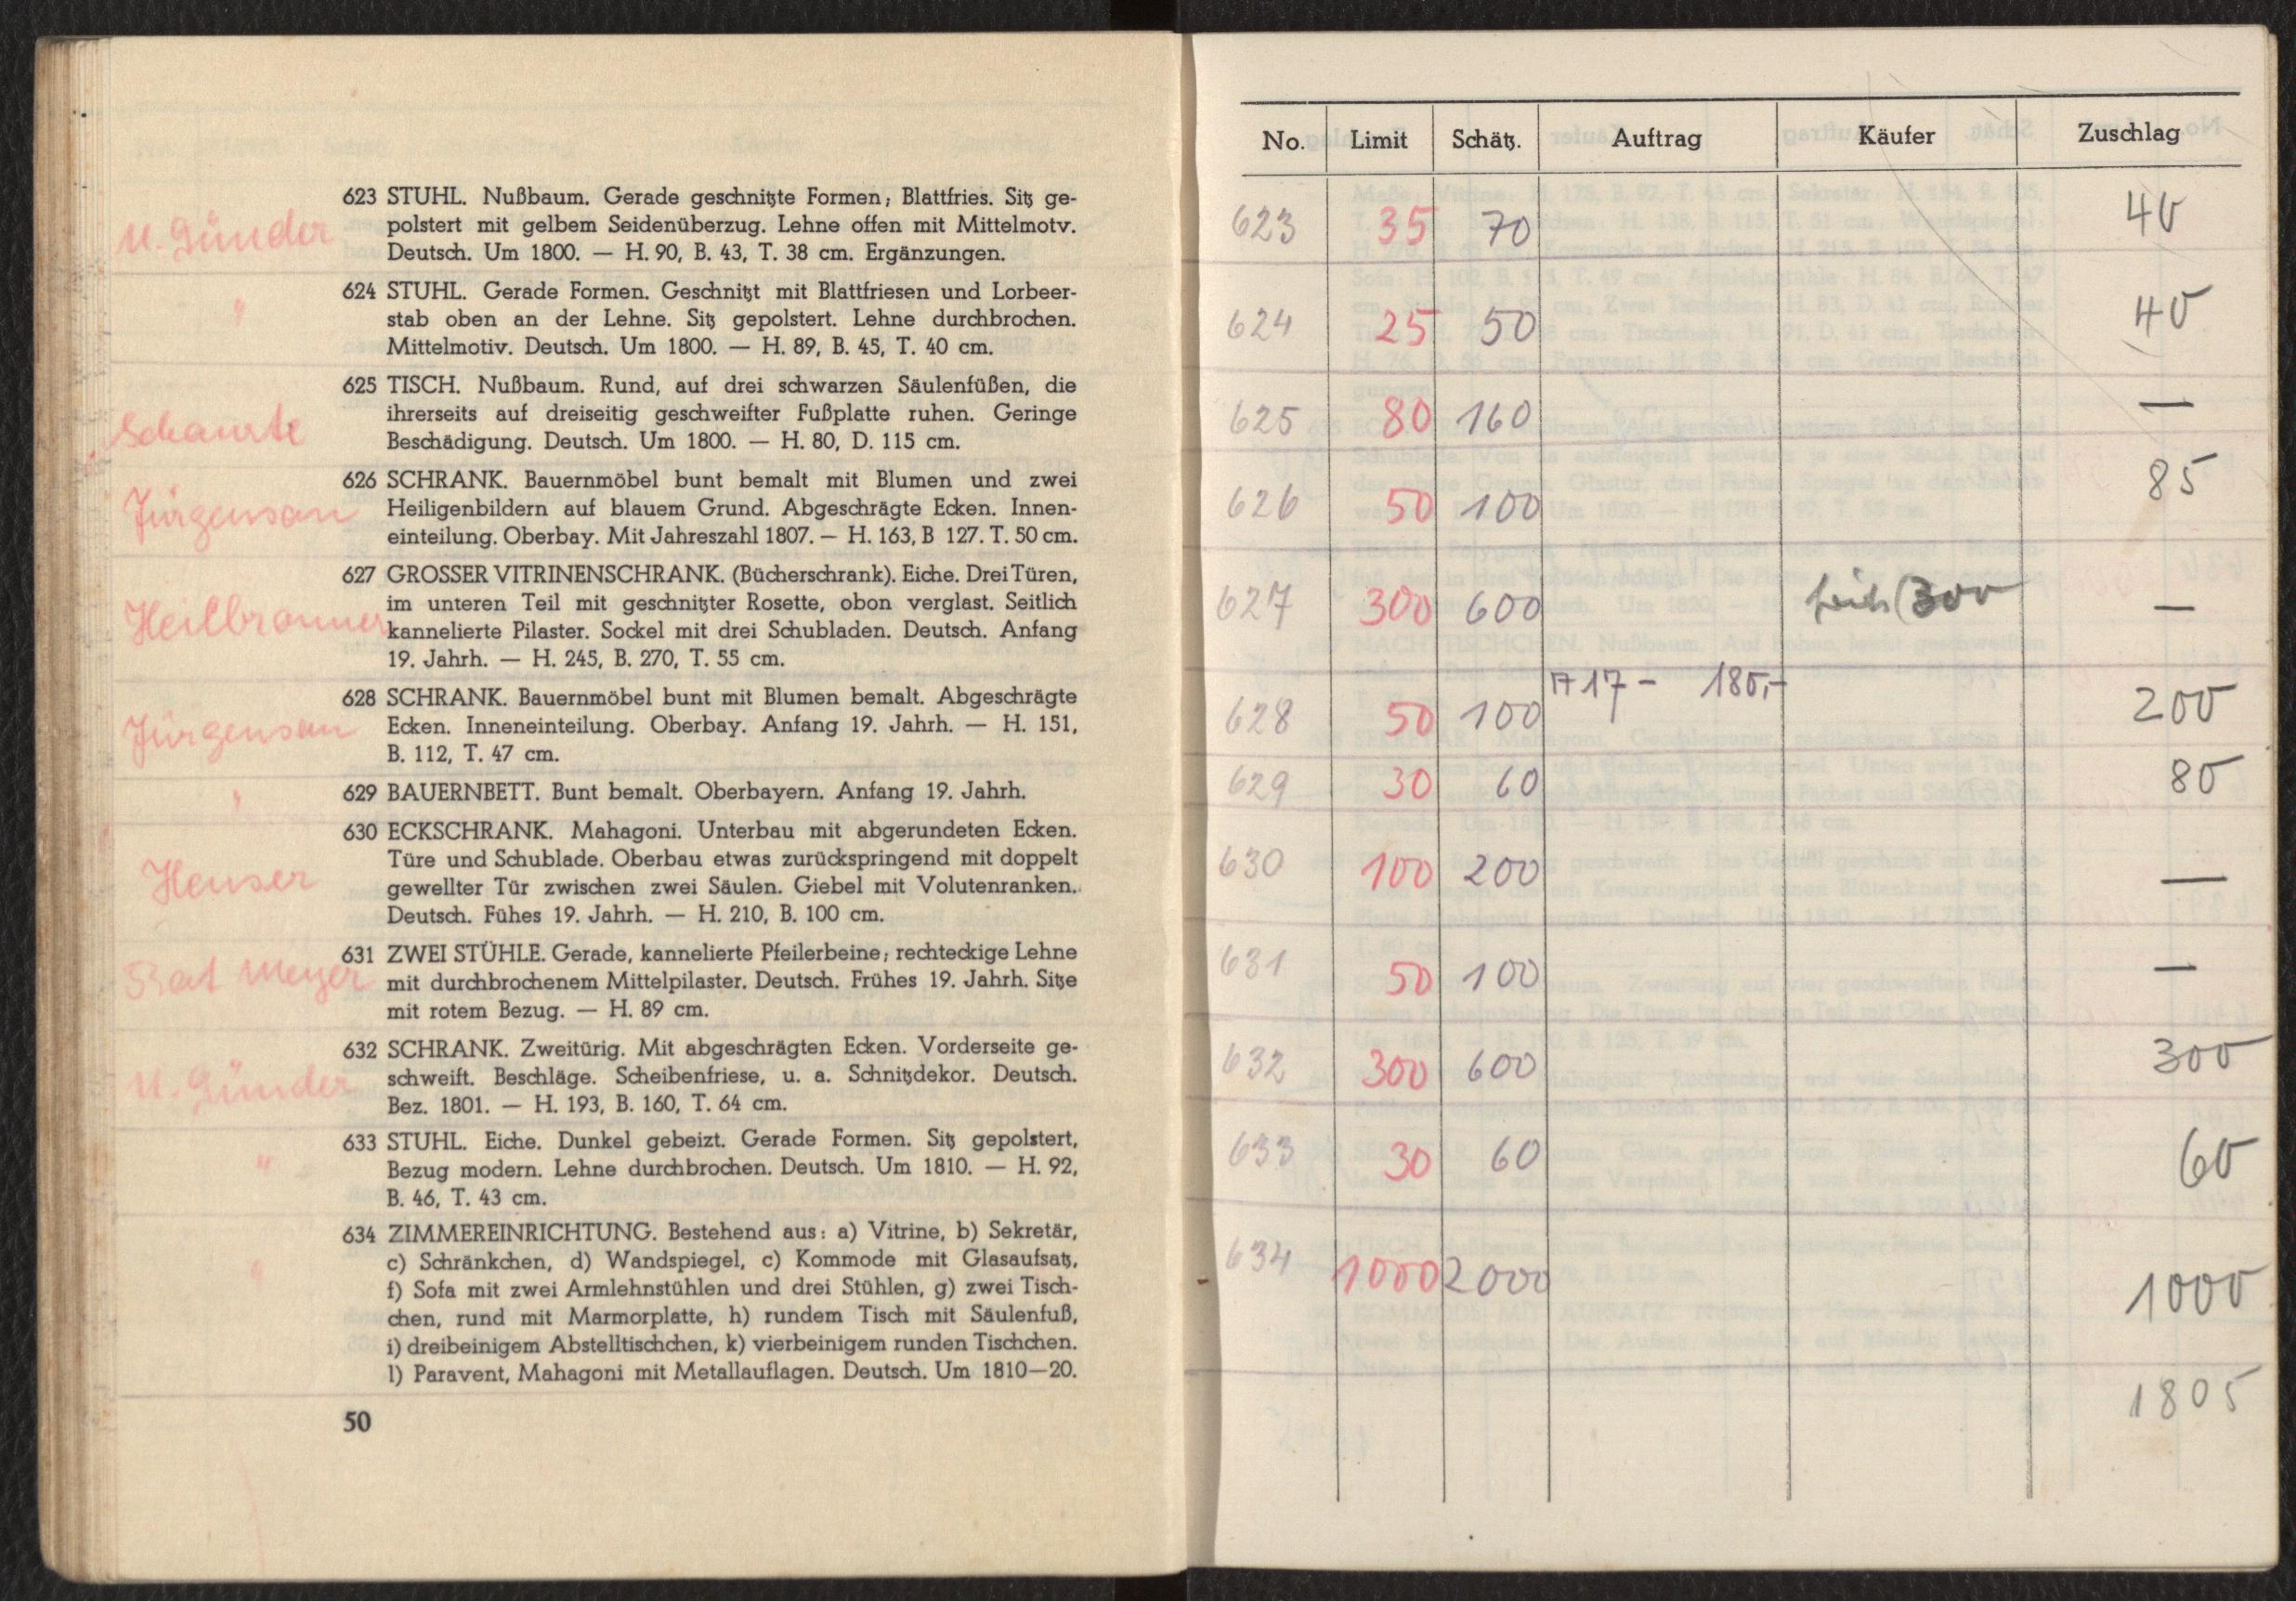 623 STUHL. Nußbaum. Gerade geschnitzte Formen; Blattfries. Sitz ge-
polstert mit gelbem Seidenüberzug. Lehne offen mit Mittelmotv.
Deutsch. Um 1800. — H. 90, B. 43, T. 38 cm. Ergänzungen.
U. Günder
624 STUHL. Gerade Formen. Geschnitzt mit Blattfriesen und Lorbeer-
stab oben an der Lehne. Sitz gepolstert. Lehne durchbrochen.
Mittelmotiv. Deutsch. Um 1800. — H. 89, B. 45, T. 40 cm.
"
625 TISCH. Nußbaum. Rund, auf drei schwarzen Säulenfüßen, die
ihrerseits auf dreiseitig geschweifter Fußplatte ruhen. Geringe
Beschädigung. Deutsch. Um 1800. — H. 80, D. 115 cm.
Schaurte
626 SCHRANK. Bauernmöbel bunt bemalt mit Blumen und zwei
Heiligenbildern auf blauem Grund. Abgeschrägte Ecken. Innen-
einteilung. Oberbay. Mit Jahreszahl 1807. — H. 163, B 127. T. 50 cm.
Jürgensan
627 GROSSER VITRINENSCHRANK. (Bücherschrank). Eiche. Drei Türen,
im unteren Teil mit geschnitzter Rosette, obon verglast. Seitlich
kannelierte Pilaster. Sockel mit drei Schubladen. Deutsch. Anfang
19. Jahrh. — H. 245, B. 270, T. 55 cm.
Heilbronner
628 SCHRANK. Bauernmöbel bunt mit Blumen bemalt. Abgeschrägte
Ecken. Inneneinteilung. Oberbay. Anfang 19. Jahrh. — H. 151,
B. 112, T. 47 cm.
Jürgensan
629 BAUERNBETT. Bunt bemalt. Oberbayern. Anfang 19. Jahrh.
"
630 ECKSCHRANK. Mahagoni. Unterbau mit abgerundeten Ecken.
Türe und Schublade. Oberbau etwas zurückspringend mit doppelt
gewellter Tür zwischen zwei Säulen. Giebel mit Volutenranken.
Deutsch. Fühes 19. Jahrh. — H. 210, B. 100 cm.
Heuser
631 ZWEI STÜHLE. Gerade, kannelierte Pfeilerbeine; rechteckige Lehne
mit durchbrochenem Mittelpilaster. Deutsch. Frühes 19. Jahrh. Sitze
mit rotem Bezug. — H. 89 cm.
Rat Meyer
632 SCHRANK. Zweitürig. Mit abgeschrägten Ecken. Vorderseite ge-
schweift. Beschläge. Scheibenfriese, u. a. Schnitzdekor. Deutsch.
Bez. 1801. — H. 193, B. 160, T. 64 cm.
U. Günder
633 STUHL. Eiche. Dunkel gebeizt. Gerade Formen. Sitz gepolstert,
Bezug modern. Lehne durchbrochen. Deutsch. Um 1810. — H. 92,
B. 46, T. 43 cm.
"
634 ZIMMEREINRICHTUNG. Bestehend aus: a) Vitrine, b) Sekretär,
c) Schränkchen, d) Wandspiegel, c) Kommode mit Glasaufsatz,
f) Sofa mit zwei Armlehnstühlen und drei Stühlen, g) zwei Tisch-
chen, rund mit Marmorplatte, h) rundem Tisch mit Säulenfuß,
i) dreibeinigem Abstelltischchen, k) vierbeinigem runden Tischchen.
l) Paravent, Mahagoni mit Metallauflagen. Deutsch. Um 1810—20.
"
50
No. Limit Schätz. Auftrag Käufer Zuschlag
623 35 70 40
624 25 50 40
625 80 160 —
626 50 100 85
627 300 600 (300 —
628 50 100 17 - 180,- 200
629 30 60 80
630 100 200 —
631 50 100 —
632 300 600 300
633 30 60 60
634 1000 2000 1000
1805